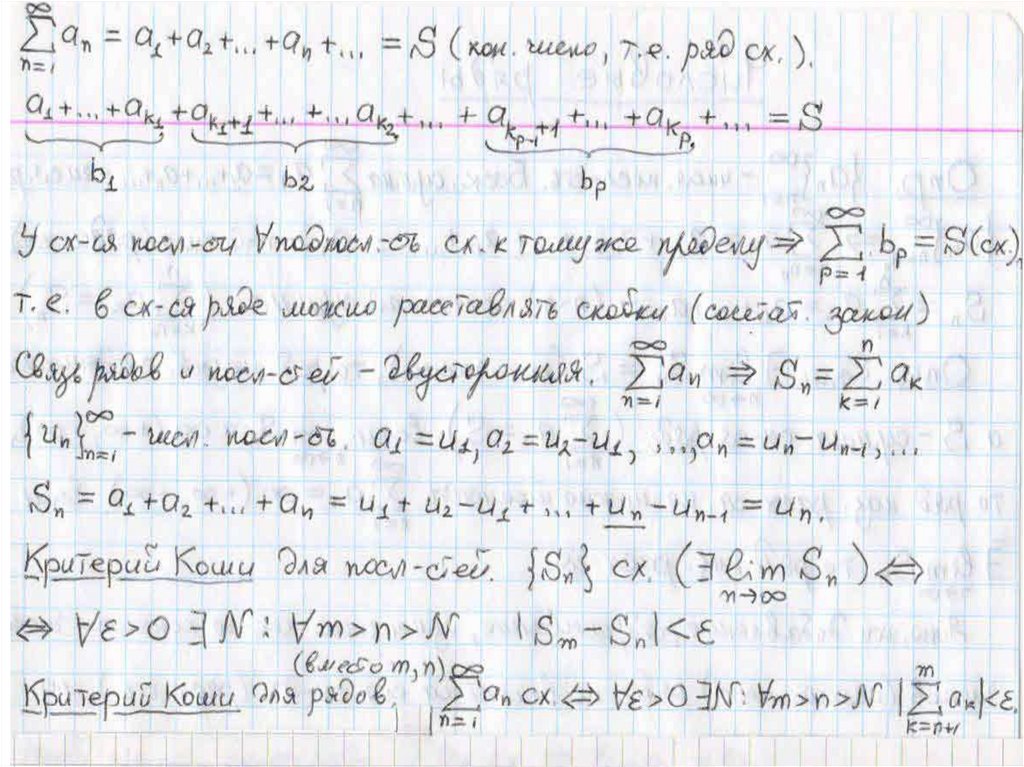 ∑_{n=1}^{∞} a_n = a_1 + a_2 + ... + a_n + ... = S (кон. число, т.е. ряд сх.).
a_1 + ... + a_{k_1} + a_{k_1+1} + ... + ... a_{k_2} + ... + a_{k_{p-1}+1} + ... + a_{k_p} + ... = S
b_1 b_2 b_p
У сх-ся посл-сти ∀ подпосл.-сть сх. к тому же пределу ⇒ ∑_{p=1}^{∞} b_p = S (сх.),
т.е. в сх-ся ряде можно расставлять скобки (сочетат. закон)
Связь рядов и посл-стей – двусторонняя. ∑_{n=1}^{∞} a_n ⇒ S_n = ∑_{k=1}^{n} a_k
{u_n}_{n=1}^{∞} – числ. посл-сть. a_1 = u_1, a_2 = u_2 - u_1, ..., a_n = u_n - u_{n-1}, ...
S_n = a_1 + a_2 + ... + a_n = u_1 + u_2 - u_1 + ... + u_n - u_{n-1} = u_n.
Критерий Коши для посл-стей. {S_n} сх. (∃ lim_{n→∞} S_n) ⇔
⇔ ∀ε > 0 ∃ N : ∀m > n > N |S_m - S_n| < ε
(вместо m, n)
Критерий Коши для рядов. ∑_{n=1}^{∞} a_n сх. ⇔ ∀ε > 0 ∃N : ∀m > n > N |∑_{k=n+1}^{m} a_k| < ε.